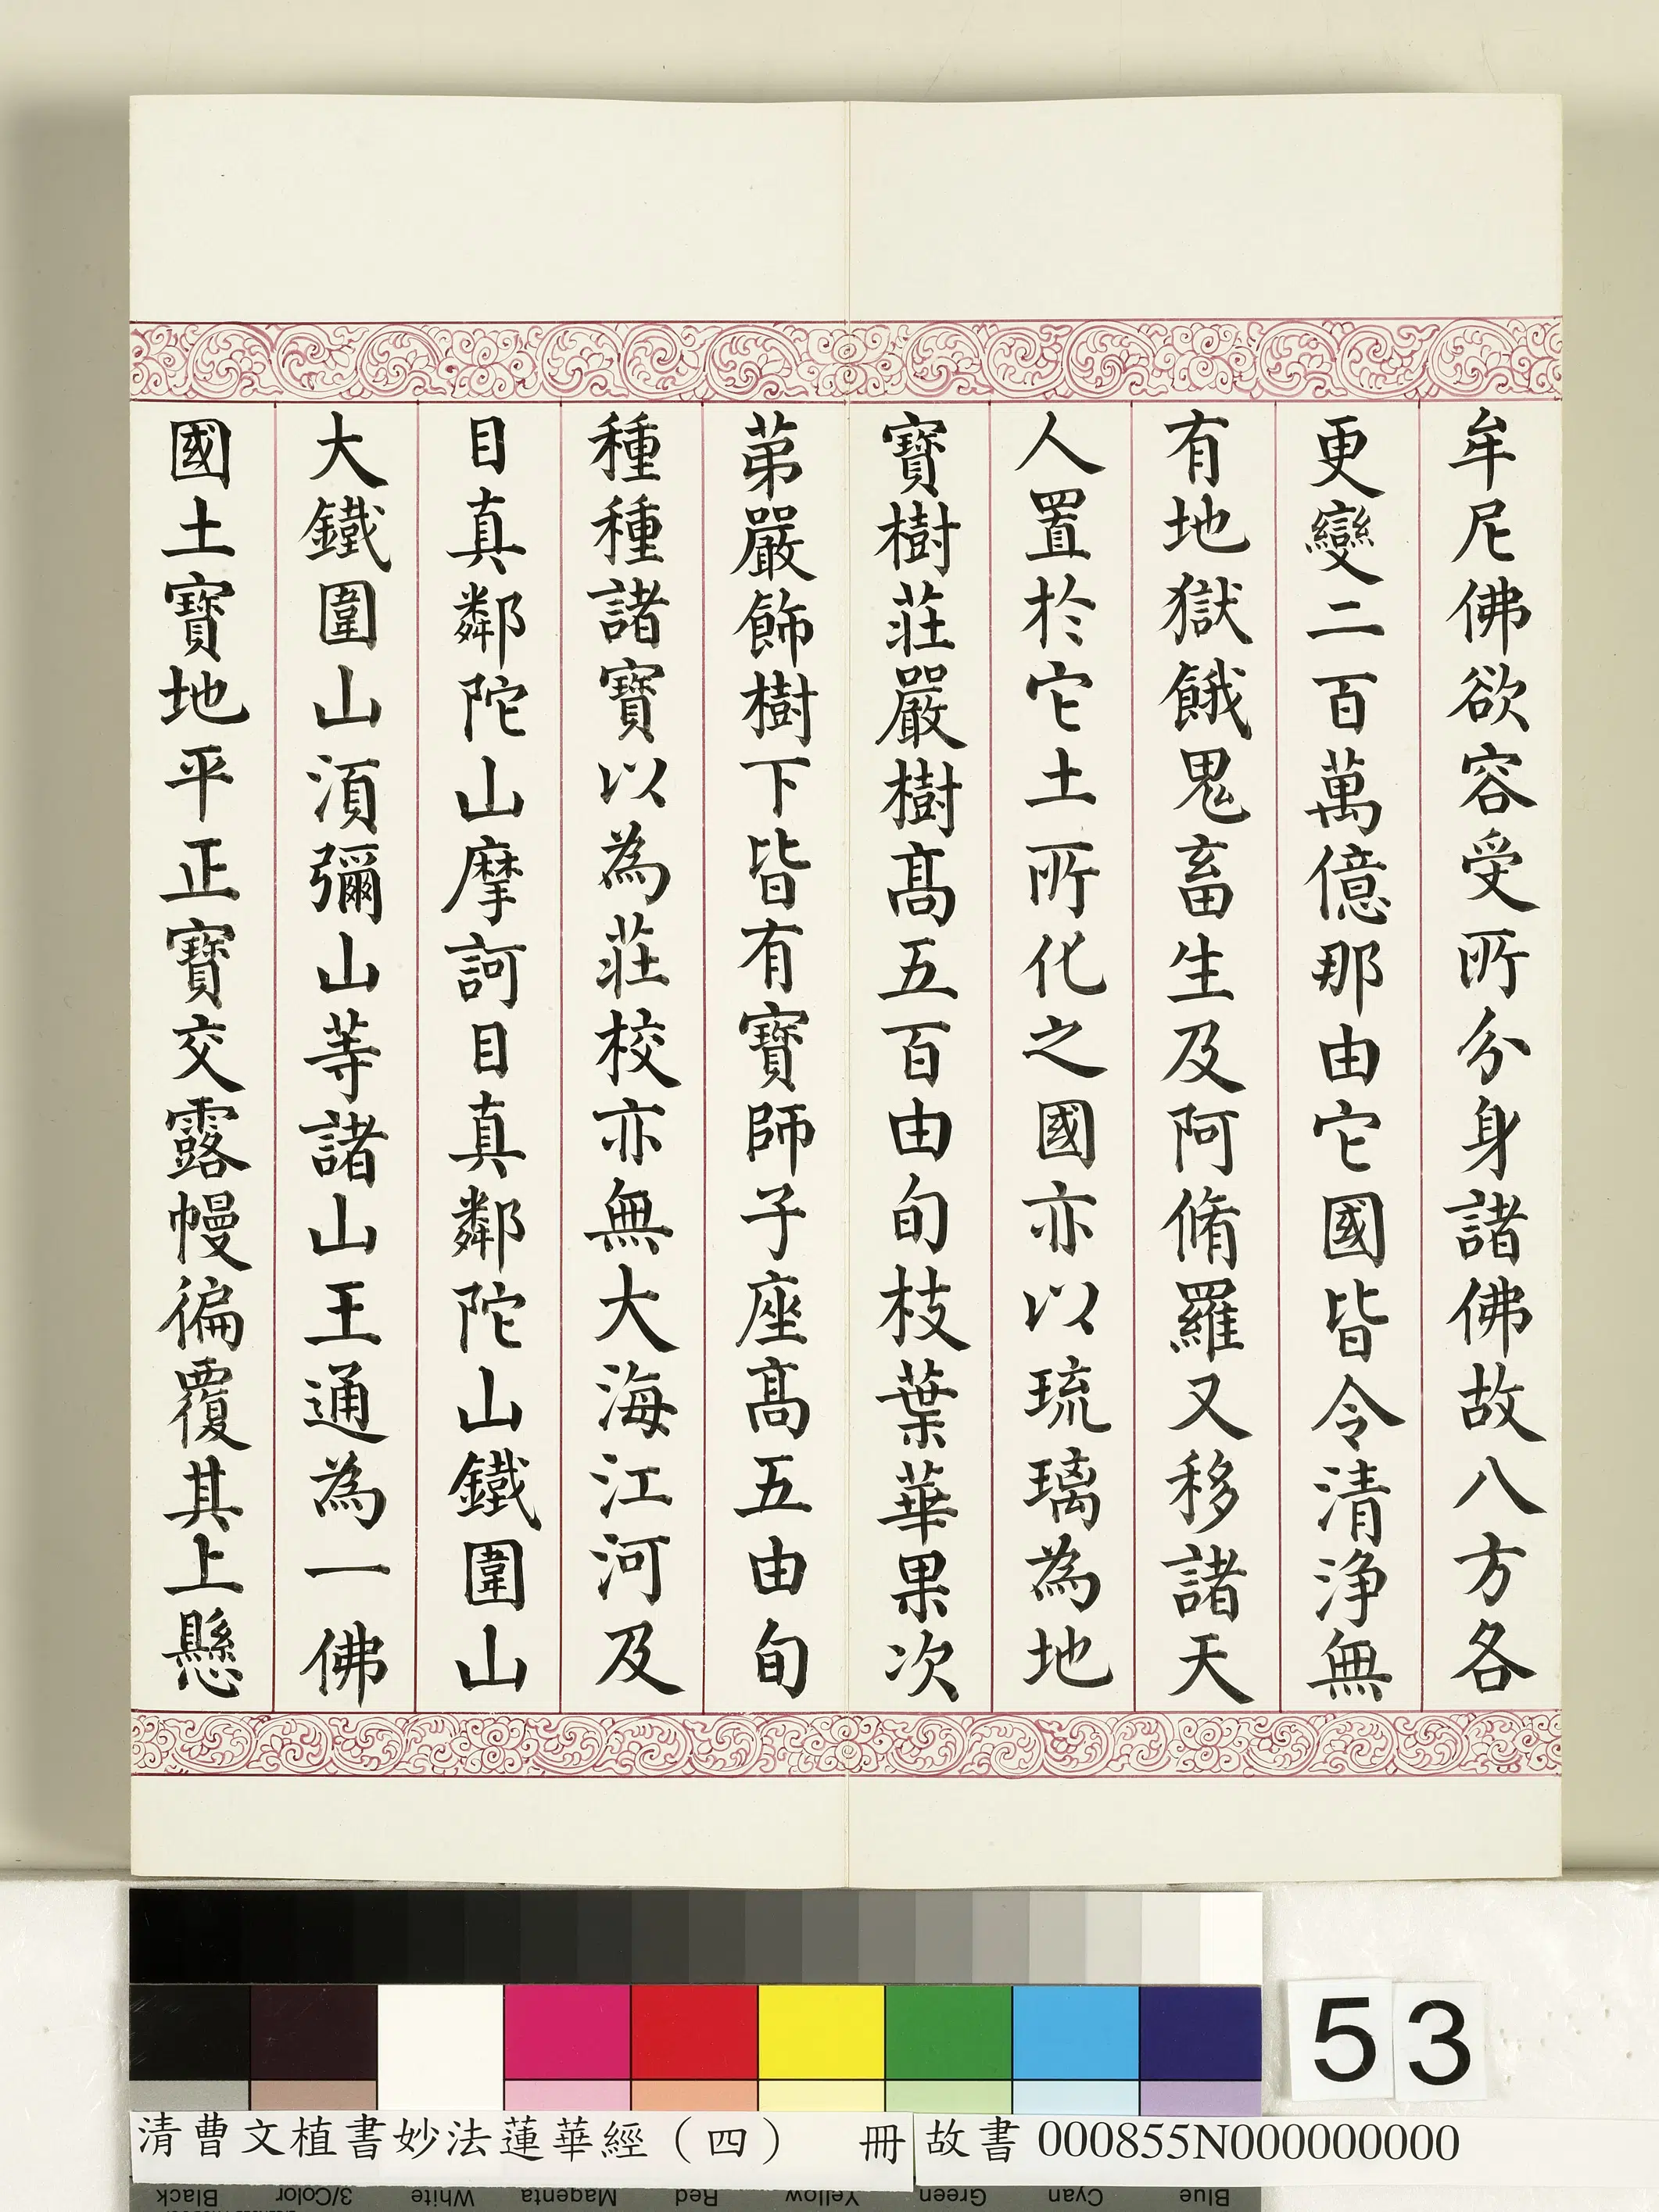 牟尼佛欲容受所分身諸佛故八方各
更變二百萬億那由它國皆令清淨無
有地獄餓鬼畜生及阿脩羅又移諸天
人置於它土所化之國亦以琉璃為地
寶樹莊嚴樹髙五百由旬枝葉華果次
苐嚴飾樹下皆有寶師子座髙五由旬
種種諸寶以為莊校亦無大海江河及
目真鄰陀山摩訶目真鄰陀山鐵圍山
大鐵圍山須彌山等諸山王通為一佛
國土寶地平正寶交露幔徧覆其上懸
53
清曹文植書妙法蓮華經（四） 冊
故書000855N000000000
Black 3/Color White Magenta Red Yellow Green Cyan Blue